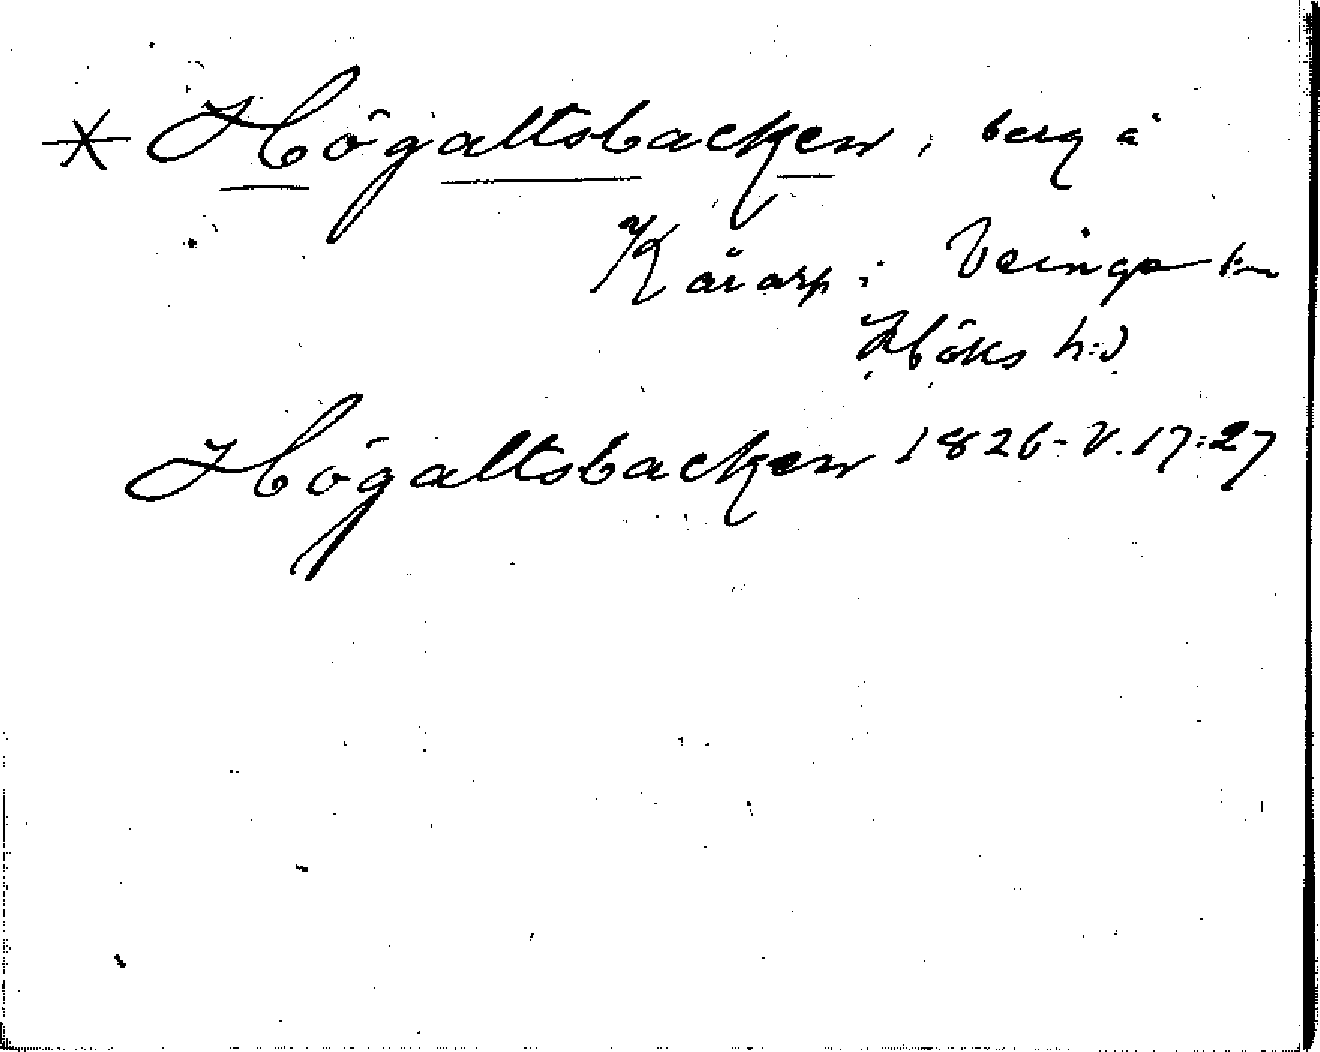 * Högaltsbacken, berg å
Kåarp i Veinge sn
Höks h:d
Högaltsbacken 1826-V.17:27